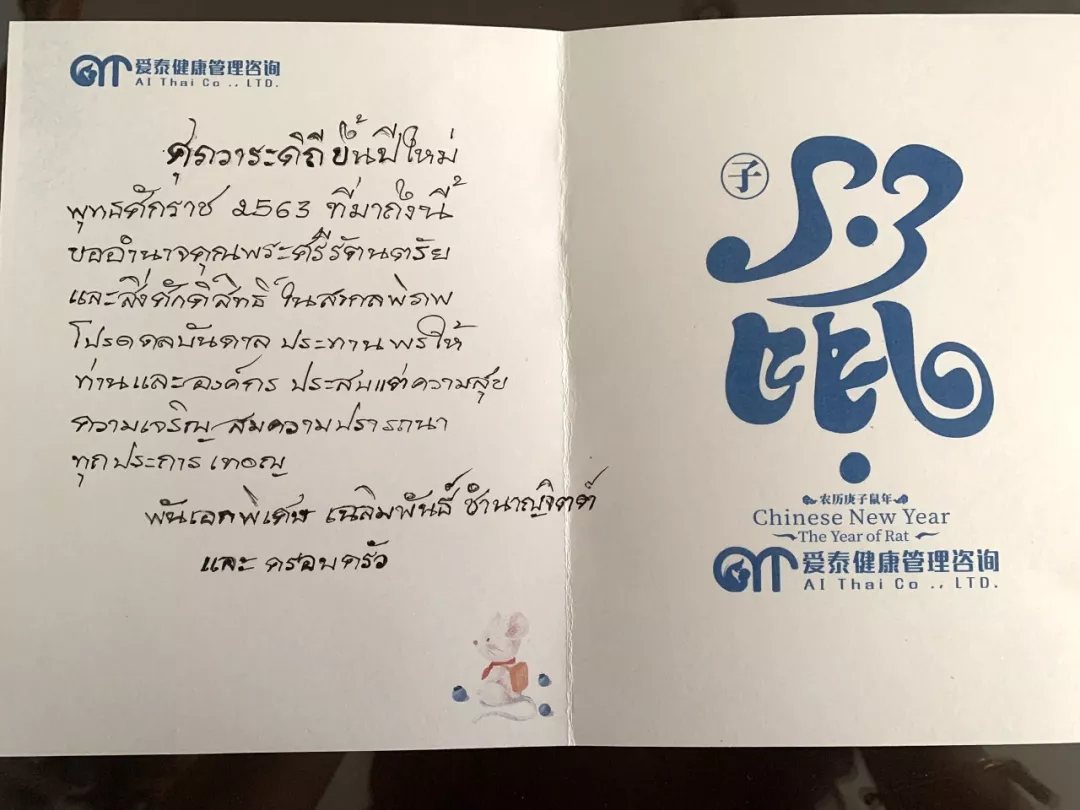 爱泰健康管理咨询
AI Thai Co ., LTD.
ศุภวาระดิถีขึ้นปีใหม่
พุทธศักราช 2563 ที่มาถึงนี้
ขออำนาจคุณพระศรีรัตนตรัย
และสิ่งศักดิ์สิทธิ์ในสากลพิภพ
โปรดดลบันดาล ประทานพรให้
ท่านและองค์กร ประสบแต่ความสุข
ความเจริญ สมความปรารถนา
ทุกประการ เทอญ
พันเอกพิเศษ เฉลิมพันธ์ ชำนาญจิตต์
และ ครอบครัว
子
鼠
农历庚子鼠年
Chinese New Year
The Year of Rat
爱泰健康管理咨询
AI Thai Co ., LTD.